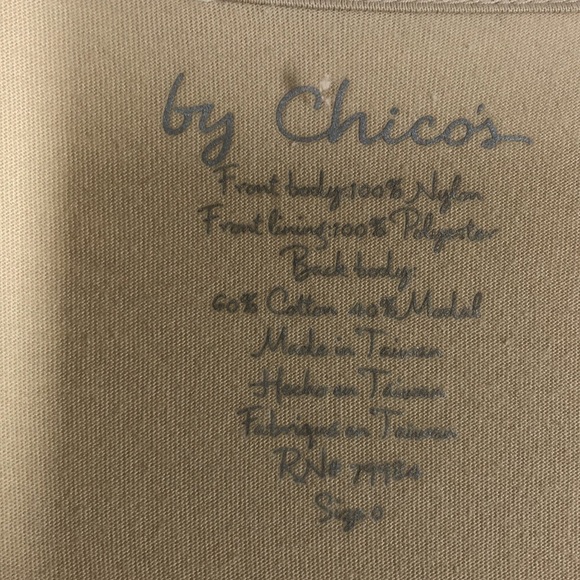 by Chico's
Front body:100% Nylon
Front lining:100% Polyester
Back body:
60% Cotton 40% Modal
Made in Taiwan
Hecho en Taiwan
Fabriqué en Taiwan
RN# 79984
Size 0